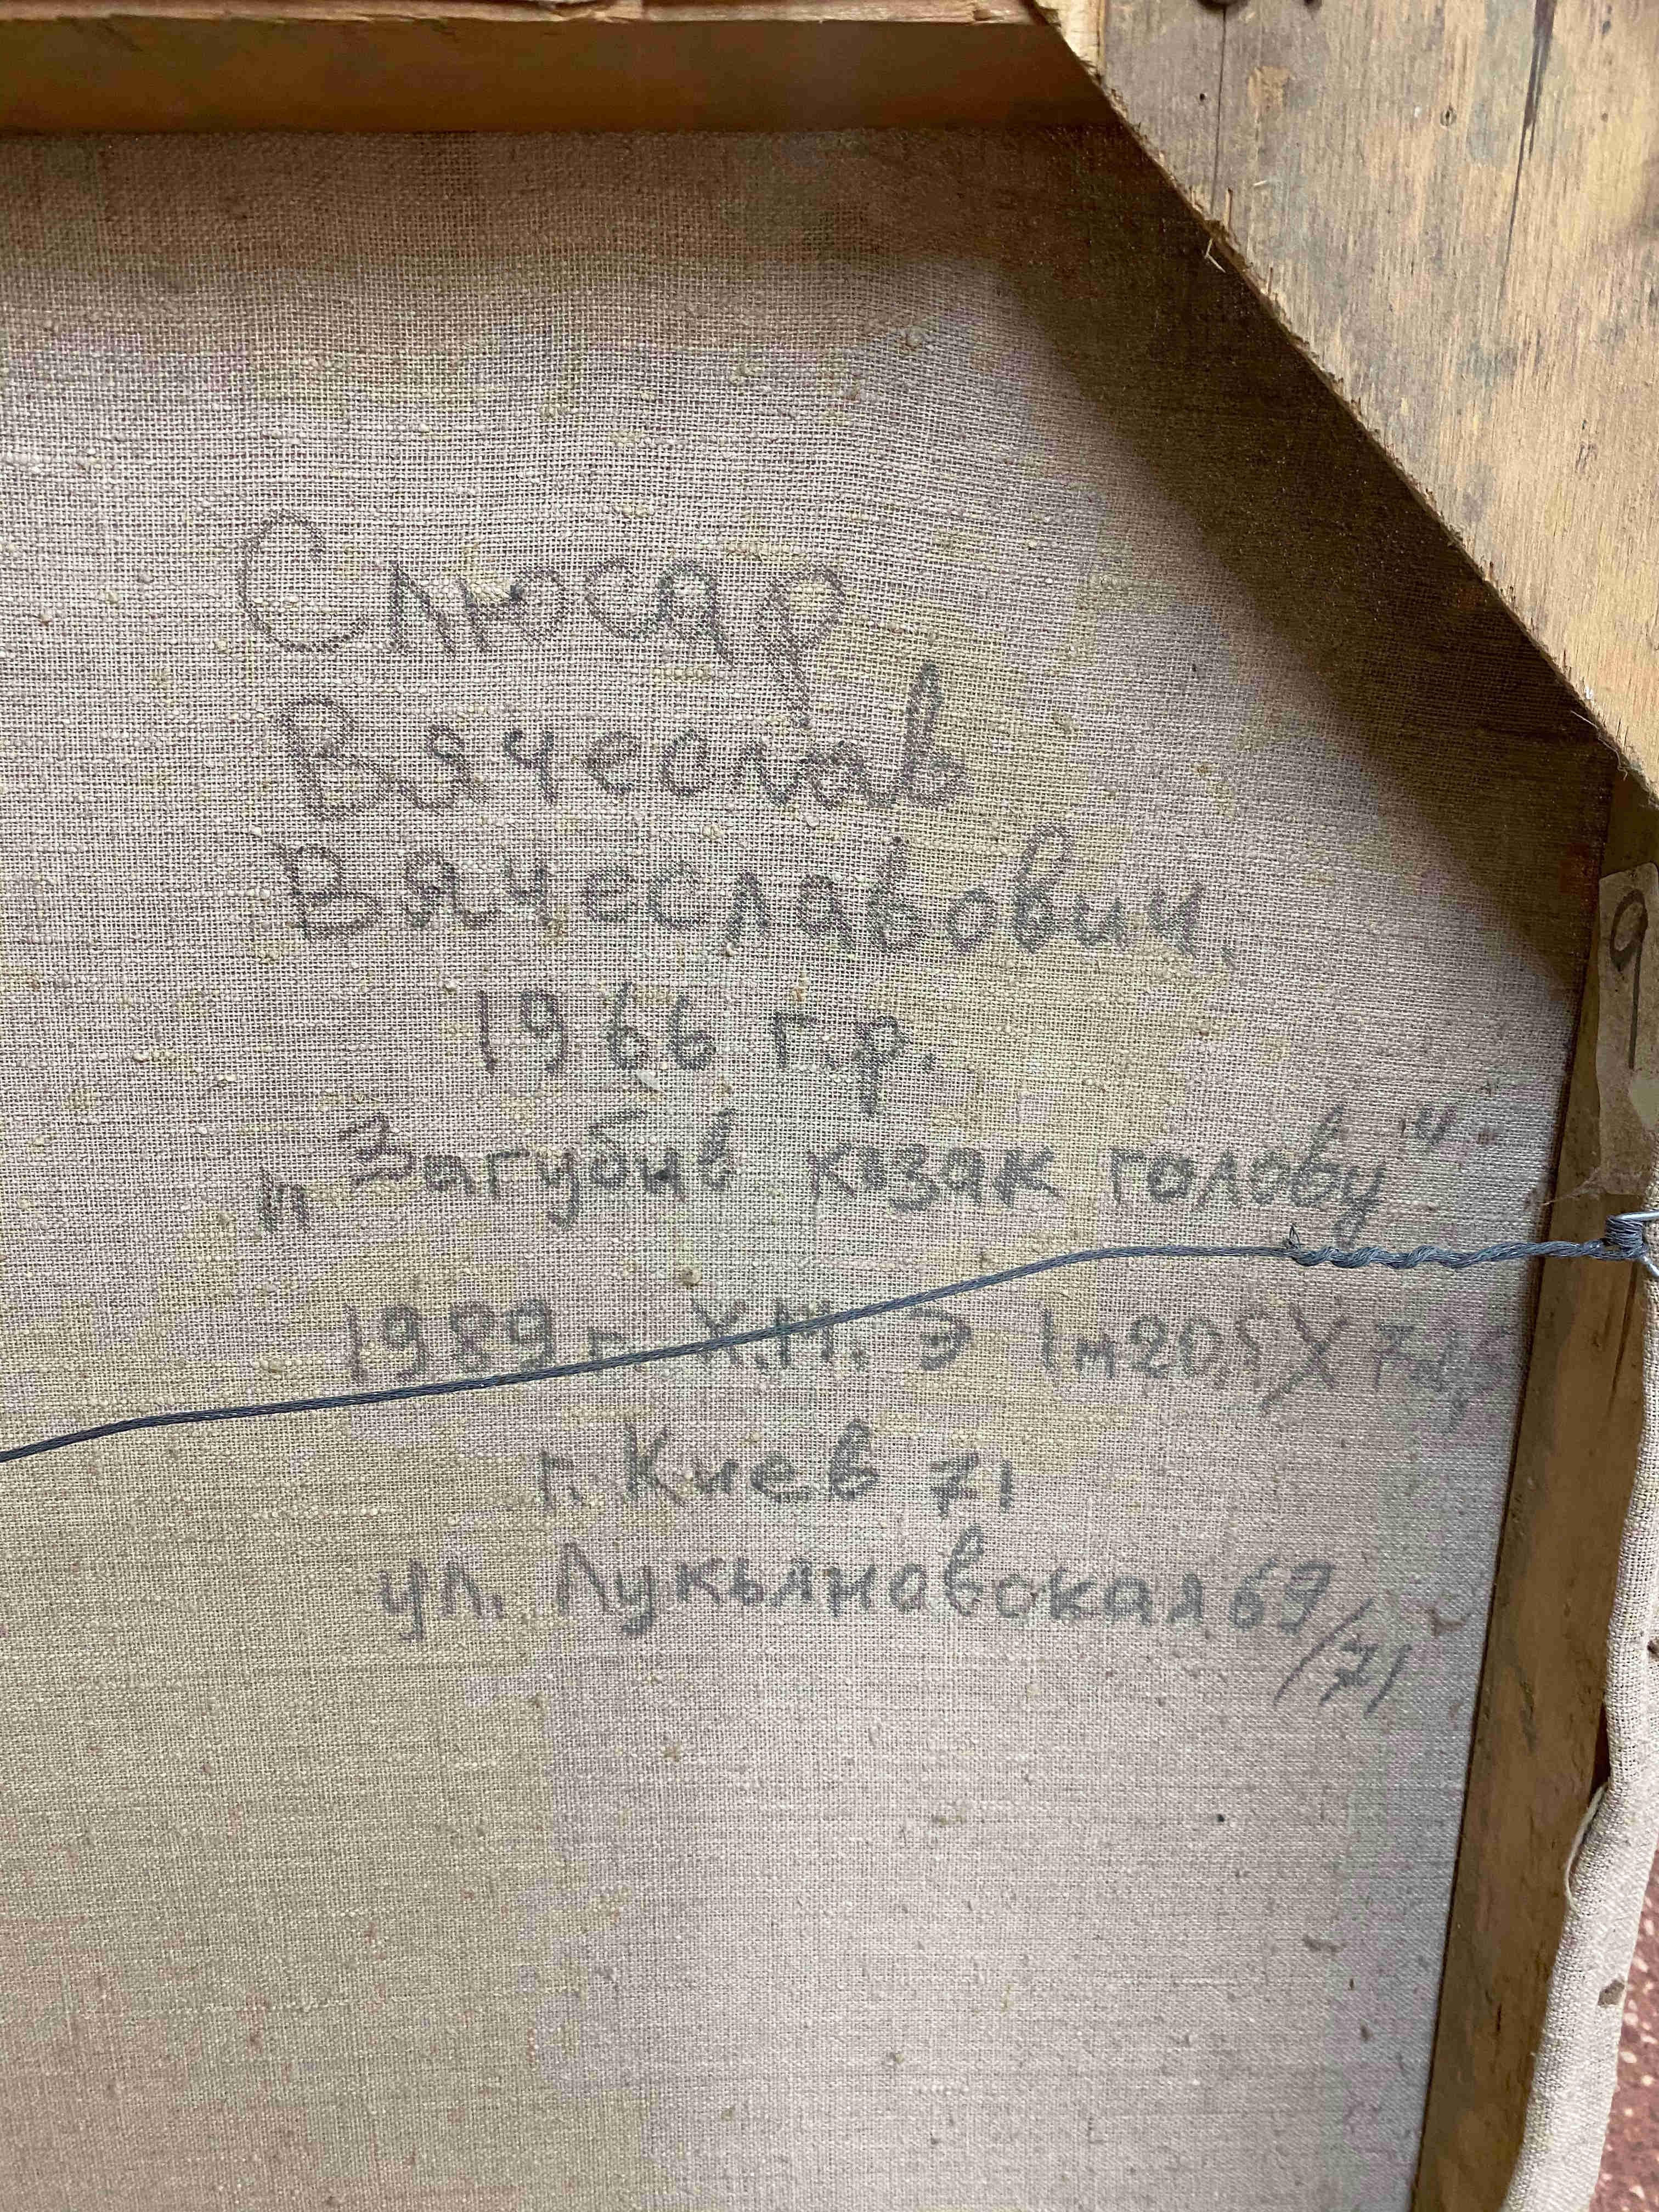 Слюсар
Вячеслав
Вячеславович,
1966 г.р.
„Загубив козак голову"
1989 г. Х.М. Э 1м20,5 Х
г. Киев 71
ул. Лукьяновская 69/21
9